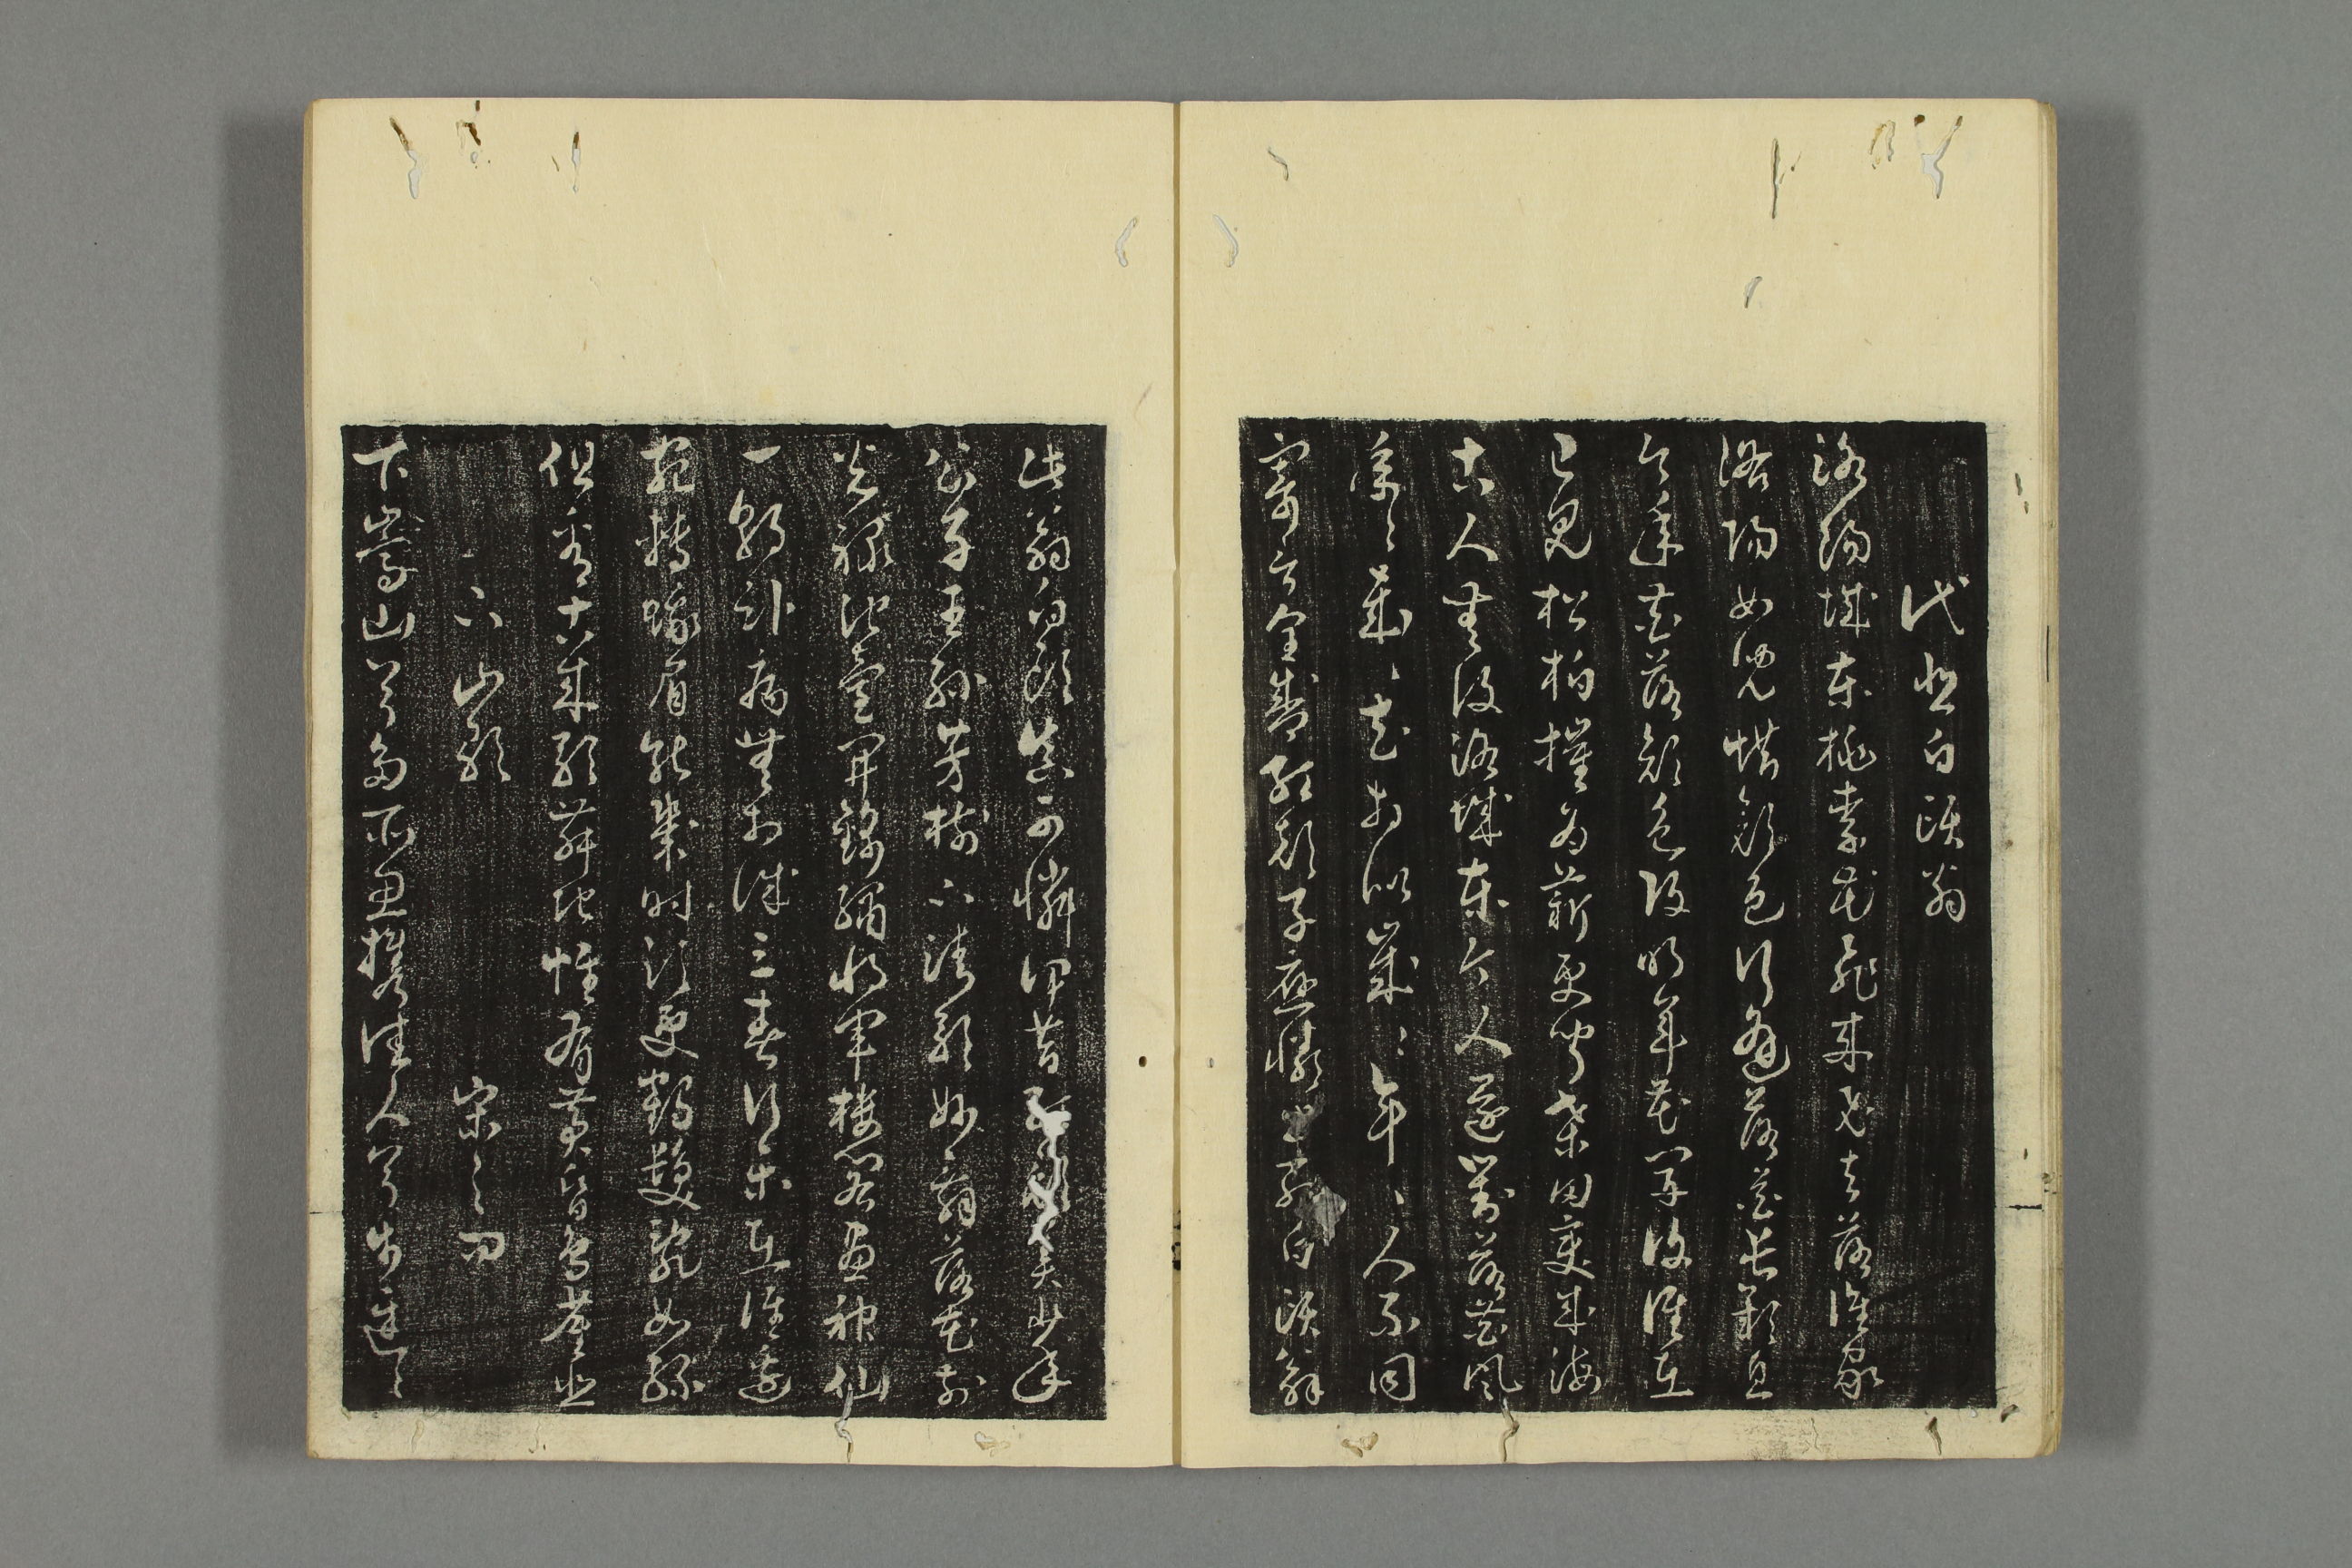 代悲白頭翁
洛陽城東桃李花飛来飛去落誰家
洛陽女兒惜顔色行逢落花長歎息
今年花落顔色改明年花開復誰在
已見松柏摧為薪更聞桑田変成海
古人無復洛城東今人還對落花風
年々歳々花相似歳々年々人不同
寄言全盛紅顔子應憐半死白頭翁
此翁白頭真可憐伊昔紅顔美少年
公子王孫芳樹下清歌妙舞落花前
光禄池臺開錦繡将軍樓閣畫神仙
一朝臥病無相識三春行樂在誰邊
宛轉蛾眉能幾時須臾鶴髪亂如絲
但看古来歌舞地惟有黄昏鳥雀悲
下山歌 宋之問
下嵩山兮多所思携佳人兮步遲々